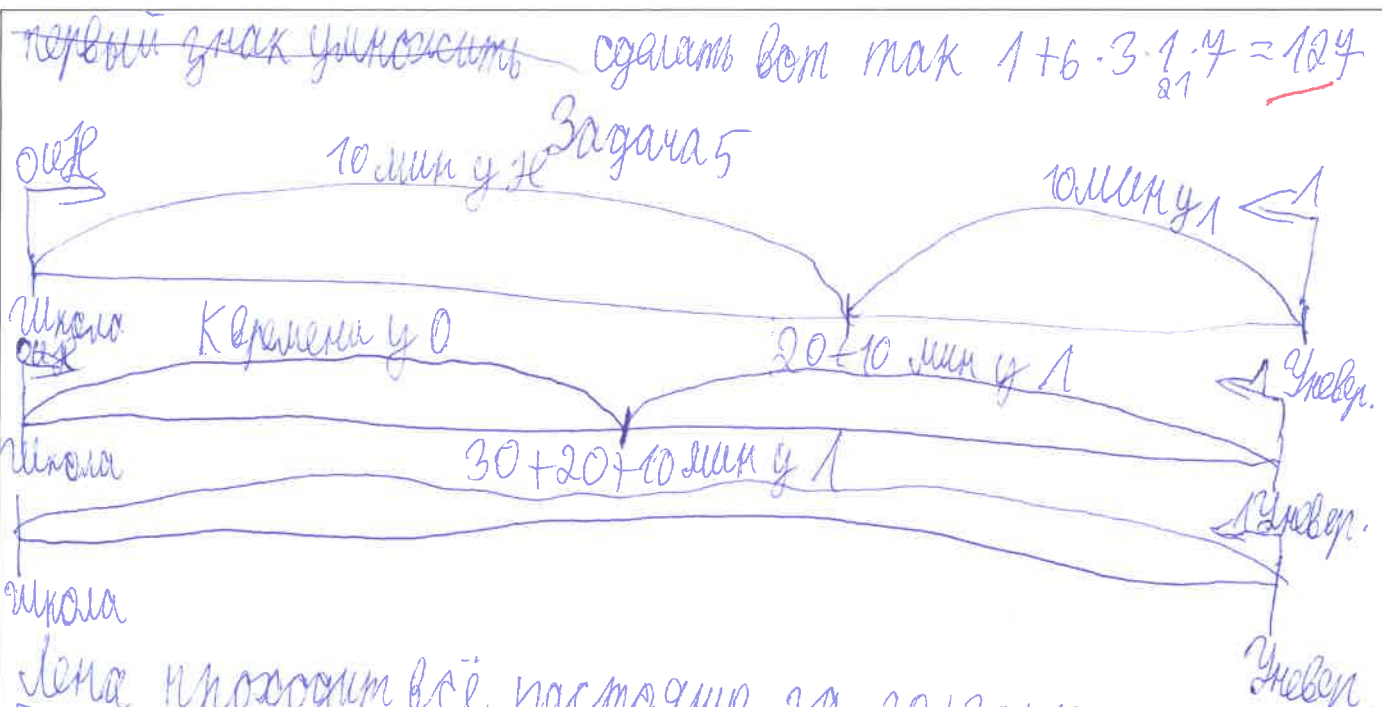 первый знак умножить сделать вот так 1+6·3·1·7=127
21
Задача 5
О и Н 10 мин у Н 10 мин у 1 1
Школа К времени у О 20+10 мин у 1 1 Уневер.
Школа 30+20+10 мин у 1 1 Уневер.
Школа Уневер.
Лена проходит всё растояние за